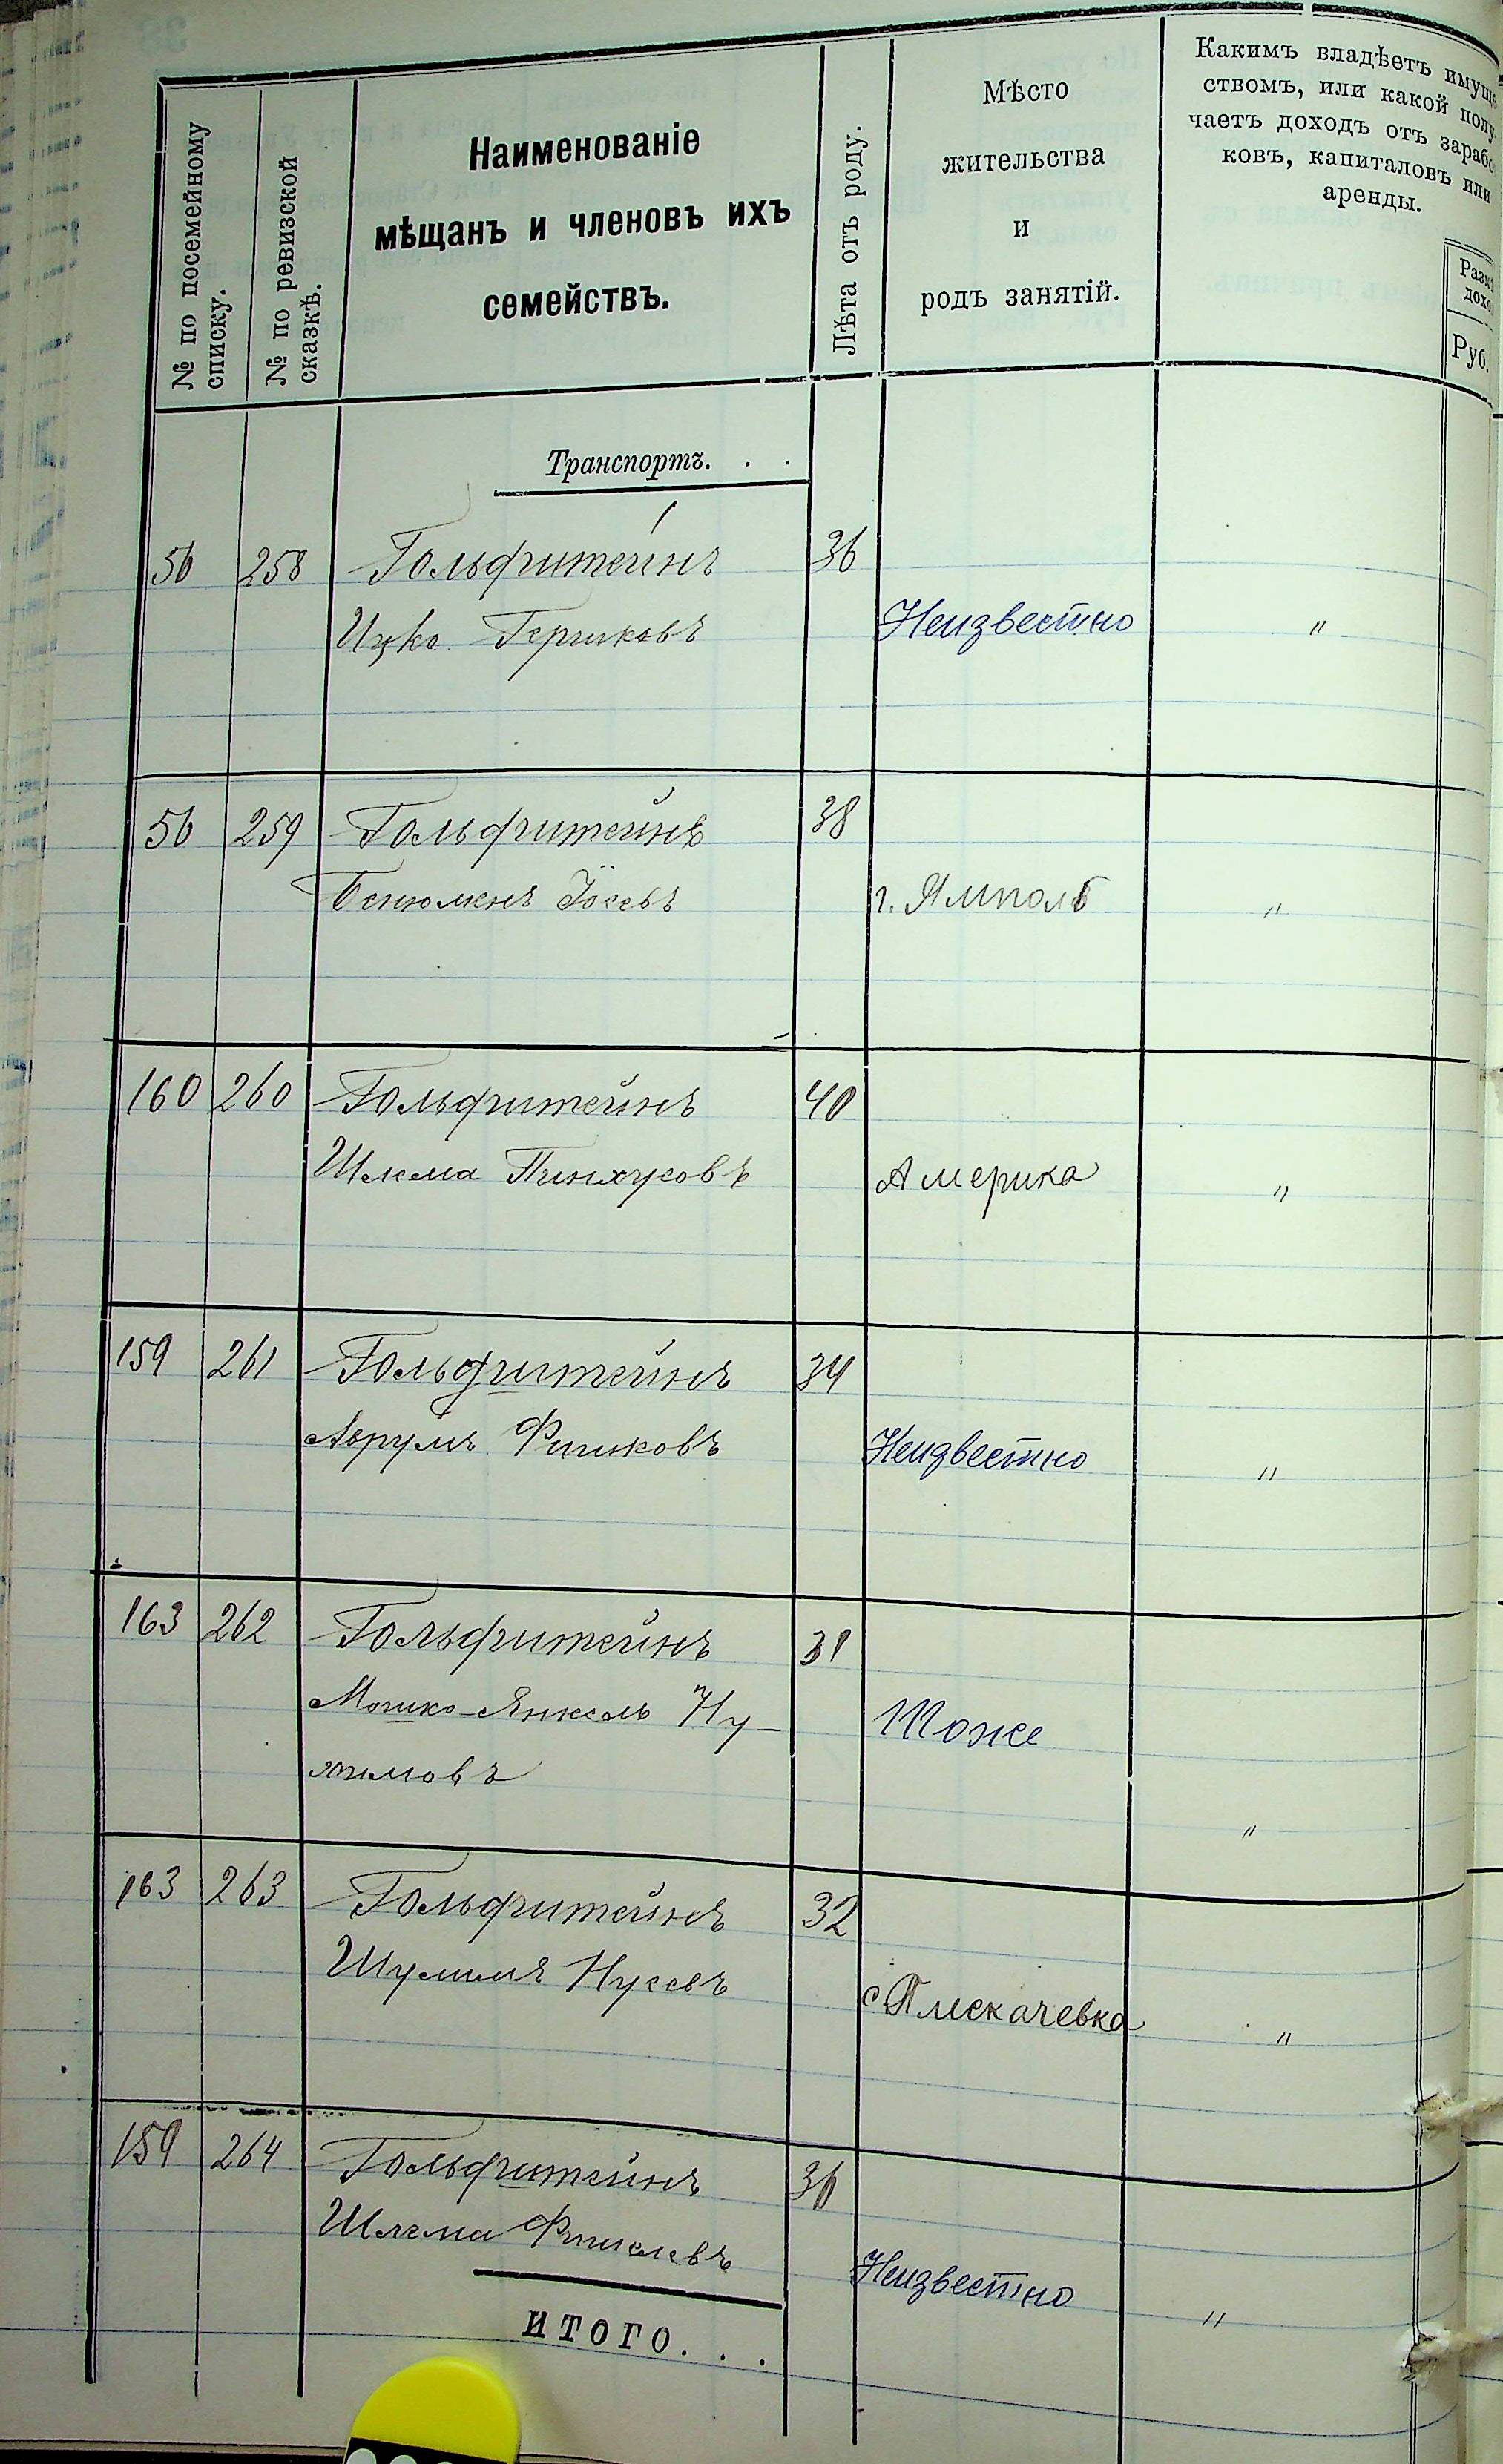 № по посемейному
списку.
№ по ревизской
сказкѣ.
Наименованіе
мѣщанъ и членовъ ихъ
семействъ.
Лѣта отъ роду.
Мѣсто
жительства
и
родъ занятій.
Какимъ владѣетъ имуще
ствомъ, или какой полу-
чаетъ доходъ отъ зарабо
ковъ, капиталовъ или
аренды.
Разм
дохо
Руб.
Транспортъ. . .
56 258 Гольфштейнъ 36
Ицко Гершковъ Неизвестно "
56 259 Гольфштейнъ 38
Бенюменъ Іосевъ г. Ямполь "
160 260 Гольфштейнъ 40
Шлема Пинхусовъ Америка "
159 261 Гольфштейнъ 34
Аврумъ Фишковъ Неизвестно "
163 262 Гольфштейнъ 31
Мошко-Янкель Ну- Тоже
химовъ "
163 263 Гольфштейнъ 32
Шулимъ Нусевъ с. Плескачевка "
159 264 Гольфштейнъ 36
Шлема Фишелевъ Неизвестно "
ИТОГО. . .